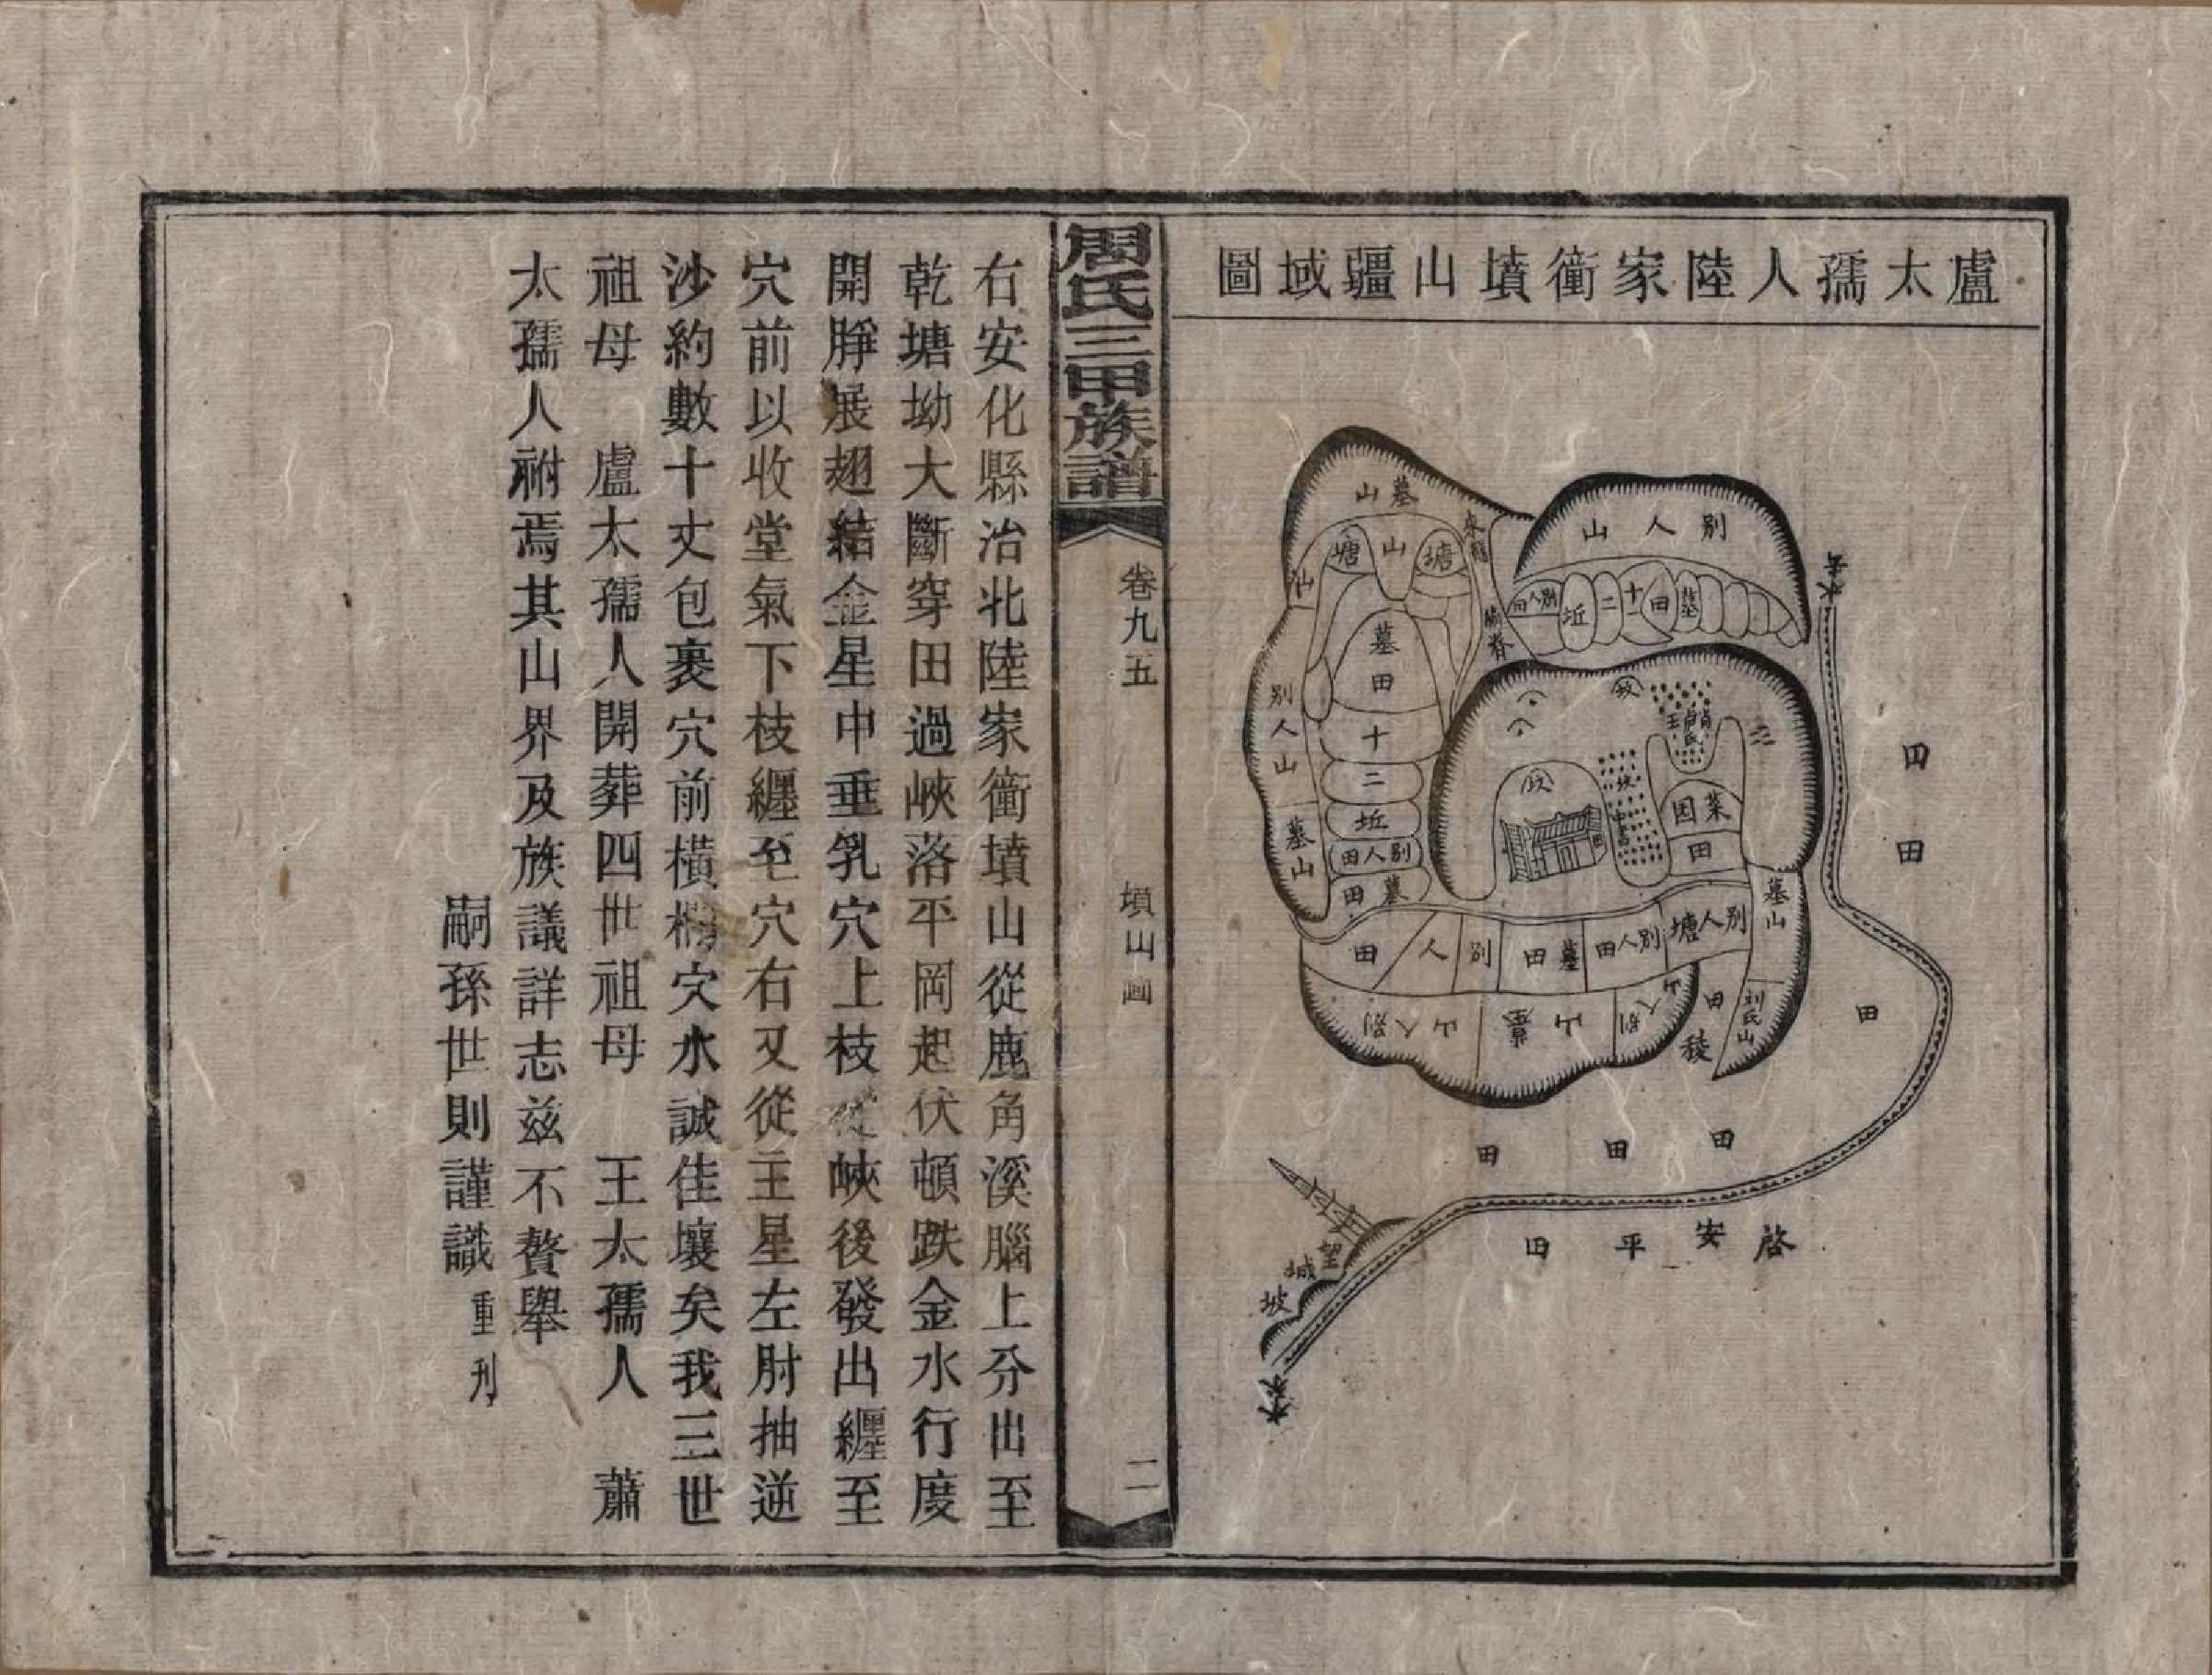 盧太孺人陸家衝墳山疆域圖
墓山
塘
山
塘
來龍
山
別人山
墓田十二坵
別人田
墓田
別人山
墓山
別人田
坵
二十
田
墓
水
菜园
田
墓山
別人塘
別人田
墓田
別人田
別人山
墓山
別人
山
田
稜
刘氏山
田
田
田
田
田
田
啓安平田
望城坡
水來
周氏三甲族譜
卷九五
墳山圖
二
右安化縣治北陸家衝墳山從鹿角溪腦上分出至
乾塘坳大斷穿田過峽落平岡起伏頓跌金水行度
開脖展翅結金星中垂乳穴上枝從峽後發出纏至
穴前以收堂氣下枝纏至穴右又從主星左肘抽逆
沙約數十丈包裹穴前橫欄穴水誠佳壤矣我三世
祖母　盧太孺人開葬四世祖母　王太孺人　蕭
太孺人祔焉其山界及族議詳志兹不贅舉
嗣孫世則謹識重刋